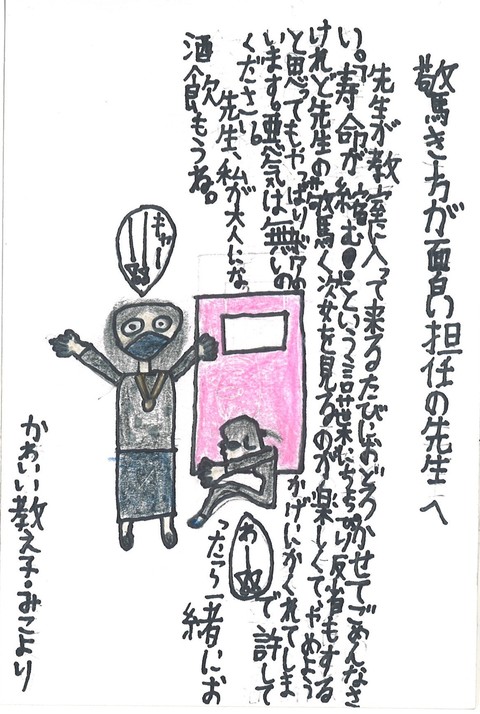 驚き方が面白い担任の先生へ
先生が教室に入って来るたびにおどろかせてごめんなさ
い。「寿命が縮む!」という言葉にちょっぴり反省もする
けれど先生の驚く姿を見るのが楽しくてやめよう
と思ってもやっぱりドアのかげにかくれてしま
います。悪気は無いので許して
ください。
先生、私が大人になったら一緒にお
酒飲もうね。
キャー
わー
かわいい教え子・みこより